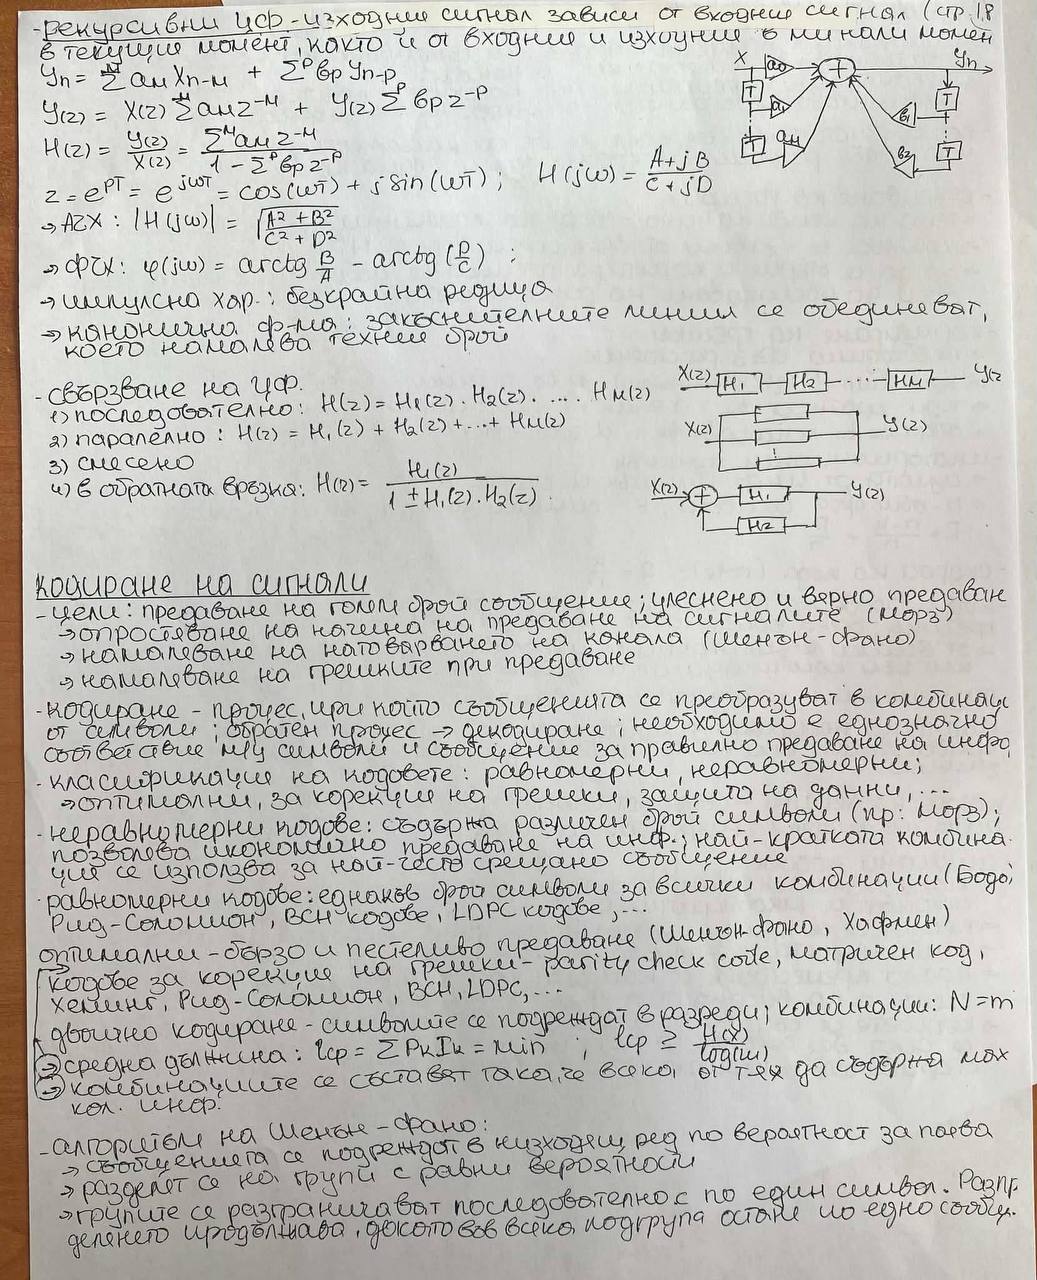 -рекурсивни ЦФ - изходния сигнал зависи от входния сигнал (стр. 1,8
в текущия момент, както и от входния и изходния в минали момен
Yn = Σᴹ aм Xn-м + Σᴾ вр Yn-р
Y(z) = X(z) Σᴹ aм z⁻ᴹ + Y(z) Σᴾ вр z⁻ᴾ
H(z) = Y(z)/X(z) = Σᴹ aм z⁻ᴹ / 1 - Σᴾ вр z⁻ᴾ
z = e^pT = e^jωT = cos(ωT) + j sin(ωT) ; H(jω) = A+jB / C+jD
→ АЧХ : |H(jω)| = √(A² + B² / C² + D²)
→ ФЧХ : φ(jω) = arctg B/A - arctg (D/C) ;
→ импулсна хар. : безкрайна редица
→ канонична ф-ма : закъснителните линии се обединяват,
което намалява техния брой
X a₀ + Yn
T a₁ в₁ T
T aм в₂ T
- свързване на ЦФ.
1) последователно : H(z) = H₁(z) . H₂(z) . ... . Hм(z)
2) паралелно : H(z) = H₁(z) + H₂(z) + ... + Hм(z)
3) смесено
4) в обратната връзка: H(z) = H₁(z) / 1 ± H₁(z) . H₂(z) .
X(z) H₁ H₂ ... Hм Y(z
X(z) ⋮ Y(z)
X(z) + H₁ Y(z)
H₂
кодиране на сигнали
- цели : предаване на голям брой съобщения ; улеснено и вярно предаван
→ опростяване на начина на предаване на сигналите (Морз)
→ намаляване на натоварването на канала (Шенън-Фано)
→ намаляване на грешките при предаване
- кодиране - процес, при който съобщенията се преобразуват в комбинаци
от символи ; обратен процес → декодиране ; необходимо е еднозначно
съответствие м/у символи и съобщение за правилно предаване на инфо
- класификация на кодовете : равномерни, неравномерни ;
→ оптимални, за корекция на грешки, защита на данни, ...
- неравномерни кодове : съдържа различен брой символи (пр: Морз) ;
позволява икономично предаване на инф. ; най-кратката комбина
ция се използва за най-често срещано съобщение
- равномерни кодове : еднакъв брой символи за всички комбинации (Бодо,
Рид-Соломион, BCH кодове, LDPC кодове, ...
оптимални - бързо и пестеливо предаване (Шенън-Фано, Хафмен)
кодове за корекция на грешки - parity check code, матричен код,
Хеминг, Рид-Соломион, BCH, LDPC, ...
двоично кодиране - символите се подреждат в разреди ; комбинации: N = m
→ средна дължина : lср = Σ Pк Iк = min ; lср ≥ H(X) / log(m)
→ комбинациите се съставят така, че всяка от тях да съдържа мах
кол. инф.
- алгоритъм на Шенън-Фано :
→ съобщенията се подреждат в низходящ ред по вероятност за поява
→ разделят се на групи с равни вероятности
→ групите се разграничават последователно с по един символ. Разпр.
делението продължава, докато във всяка подгрупа остане по едно съобщ.